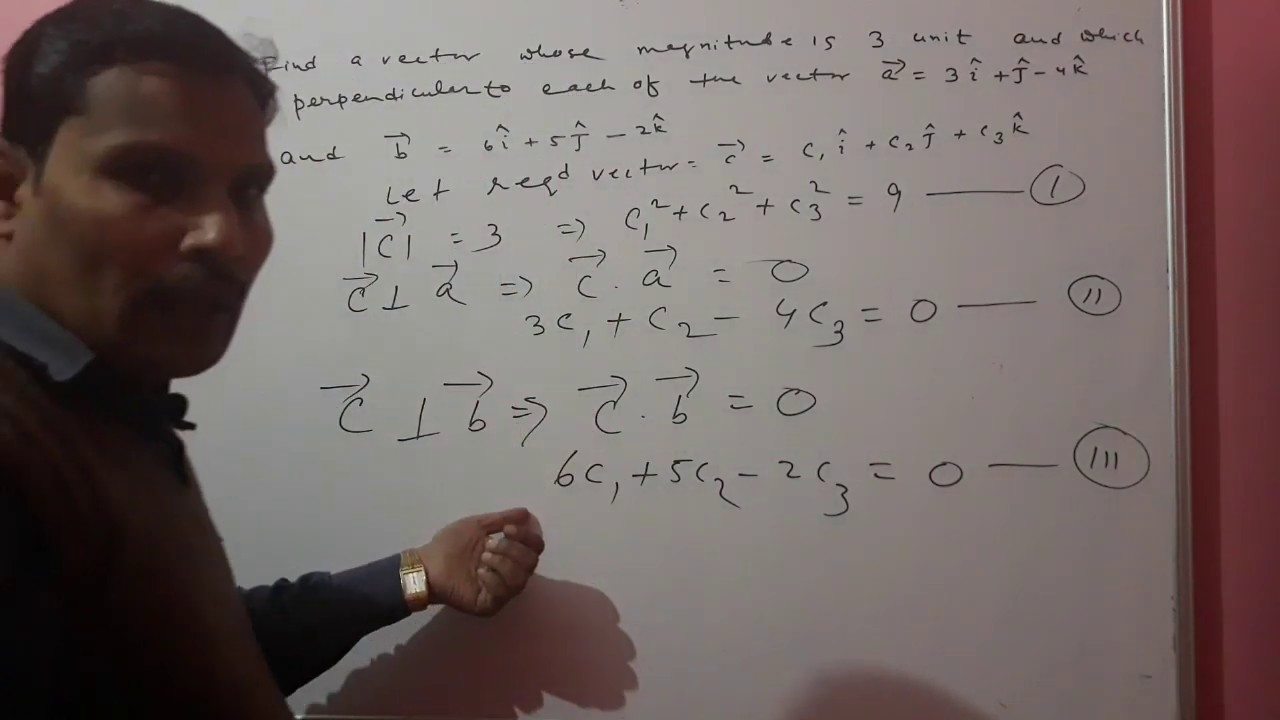 Find a vector whose magnitude is 3 unit and which
perpendicular to each of the vector a⃗ = 3î + ĵ - 4k̂
and b⃗ = 6î + 5ĵ - 2k̂
Let reqd vector = c⃗ = c₁î + c₂ĵ + c₃k̂
|c⃗| = 3 ⇒ c₁² + c₂² + c₃² = 9 — I
c⃗ ⊥ a⃗ ⇒ c⃗ . a⃗ = 0
3c₁ + c₂ - 4c₃ = 0 — II
c⃗ ⊥ b⃗ ⇒ c⃗ . b⃗ = 0
6c₁ + 5c₂ - 2c₃ = 0 — III